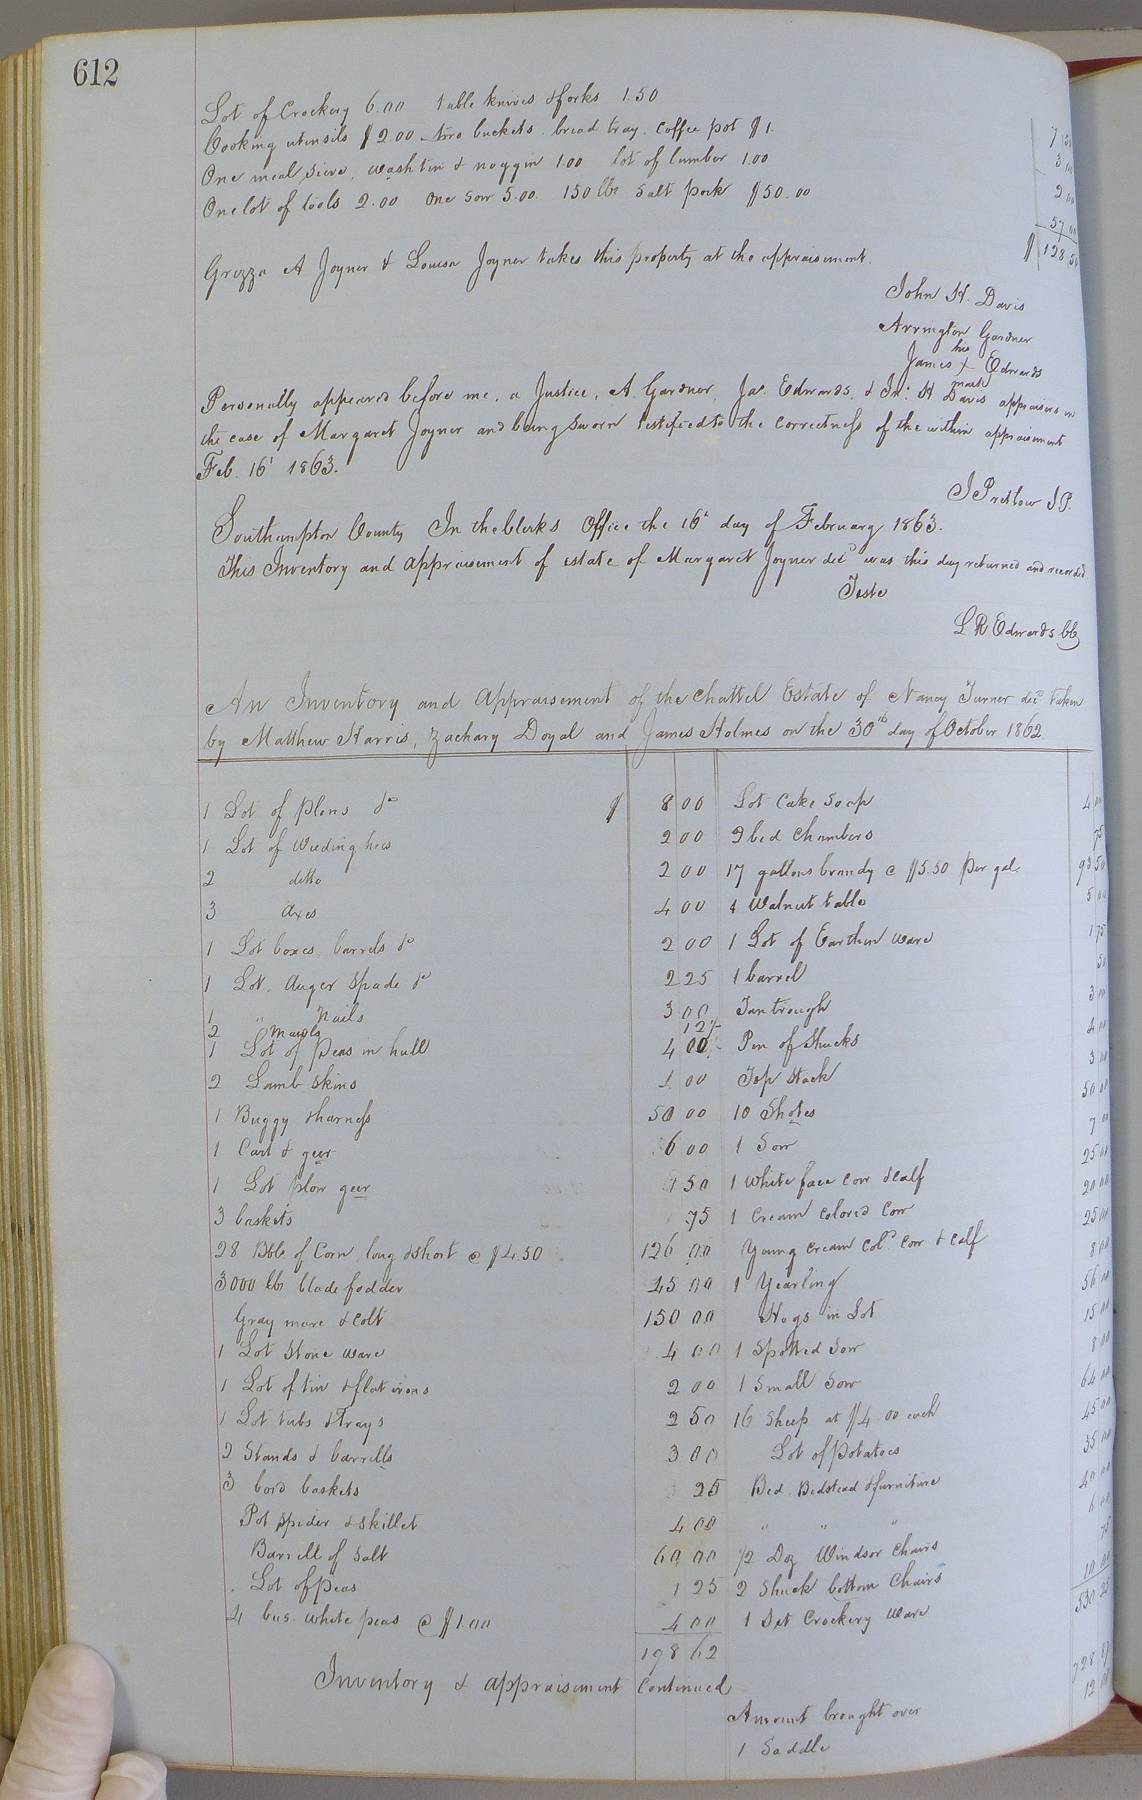 612
Lot of Crockery 6.00 table knives & forks 1.50 7 50
Cooking utensils $2.00 two buckets, bread tray, Coffee pot $1. 3 00
One meal sieve, wash tin & noggin 1.00 lot of lumber 1.00 2 00
One lot of tools 2.00 One Sow 5.00 150 lbs Salt pork $50.00 57 00
$128 50
Grizza A Joyner & Louisa Joyner takes this property at the appraisement.
John H. Davis
Arrington Gardner
his
James X Edwards
mark
Personally appeared before me, a Justice, A. Gardner, Jas. Edwards, & Jno. H Davis appraisers in
the case of Margaret Joyner and being sworn testified to the correctness of the within appraisement
Feb. 16t 1863.
J Pretlow J.P.
Southampton County In the Clerks Office the 16t day of February 1863.
This Inventory and appraisement of estate of Margaret Joyner decd was this day returned and recorded.
Teste
L R Edwards CC
An Inventory and Appraisement of the Chattel Estate of Nancy Turner decd taken
by Matthew Harris, Zachary Doyal and James Holmes on the 30th day of October 1862
1 Lot of plons &c $ 8 00
1 Lot of Weeding hoes 2 00
2 ditto 2 00
3 axes 4 00
1 Lot boxes, barrels &c 2 00
1 Lot. Auger Spade &c 2 25
1 " Nails 3 00
2 Mauls 12½
1 Lot of peas in hull 4 00
2 Lamb skins 1 00
1 Buggy & harness 50 00
1 Cart & geer 6 00
1 Lot plow geer 1 50
3 baskets 75
28 Bbls of Corn, long & short @ $4.50 126 00
3000 lbs blade fodder 45 00
Gray mare & colt 150 00
1 Lot Stone ware 4 00
1 Lot of tin & flat irons 2 00
1 Lot tubs & Trays 2 50
2 Stands & barrells 3 00
3 baskets 25
Pot spider & skillet 4 00
Barrell of Salt 60 00
Lot of peas 1 25
4 bus. white peas @ $1.00 4 00
198 62
Lot Cake Soap 4 00
2 bed Chambers 75
17 gallons brandy @ $5.50 per gal. 93 50
1 Walnut table 5 00
1 Lot of Earthen ware 1 75
1 barrel 50
Tan trough 3 00
Pen of Shucks 4 00
Top Stack 3 00
10 Shotes 50 00
1 Sow 7 00
1 White face cow & calf 25 00
1 Cream colored Cow 20 00
Young cream cold cow & calf 25 00
1 Yearling 8 00
Hogs in Lot 56 00
1 Spotted Sow 15 00
1 Small Sow 8 00
16 Sheep at $4.00 each 64 00
Lot of Potatoes 45 00
Bed, Bedstead & furniture 35 00
" " " 40 00
1/2 Doz Windsor Chairs 6 00
2 Shuck bottom Chairs 75
1 Set Crockery ware 10 00
530 25
Inventory & appraisement Continued
Amount brought over 728 87
1 Saddle 12 00